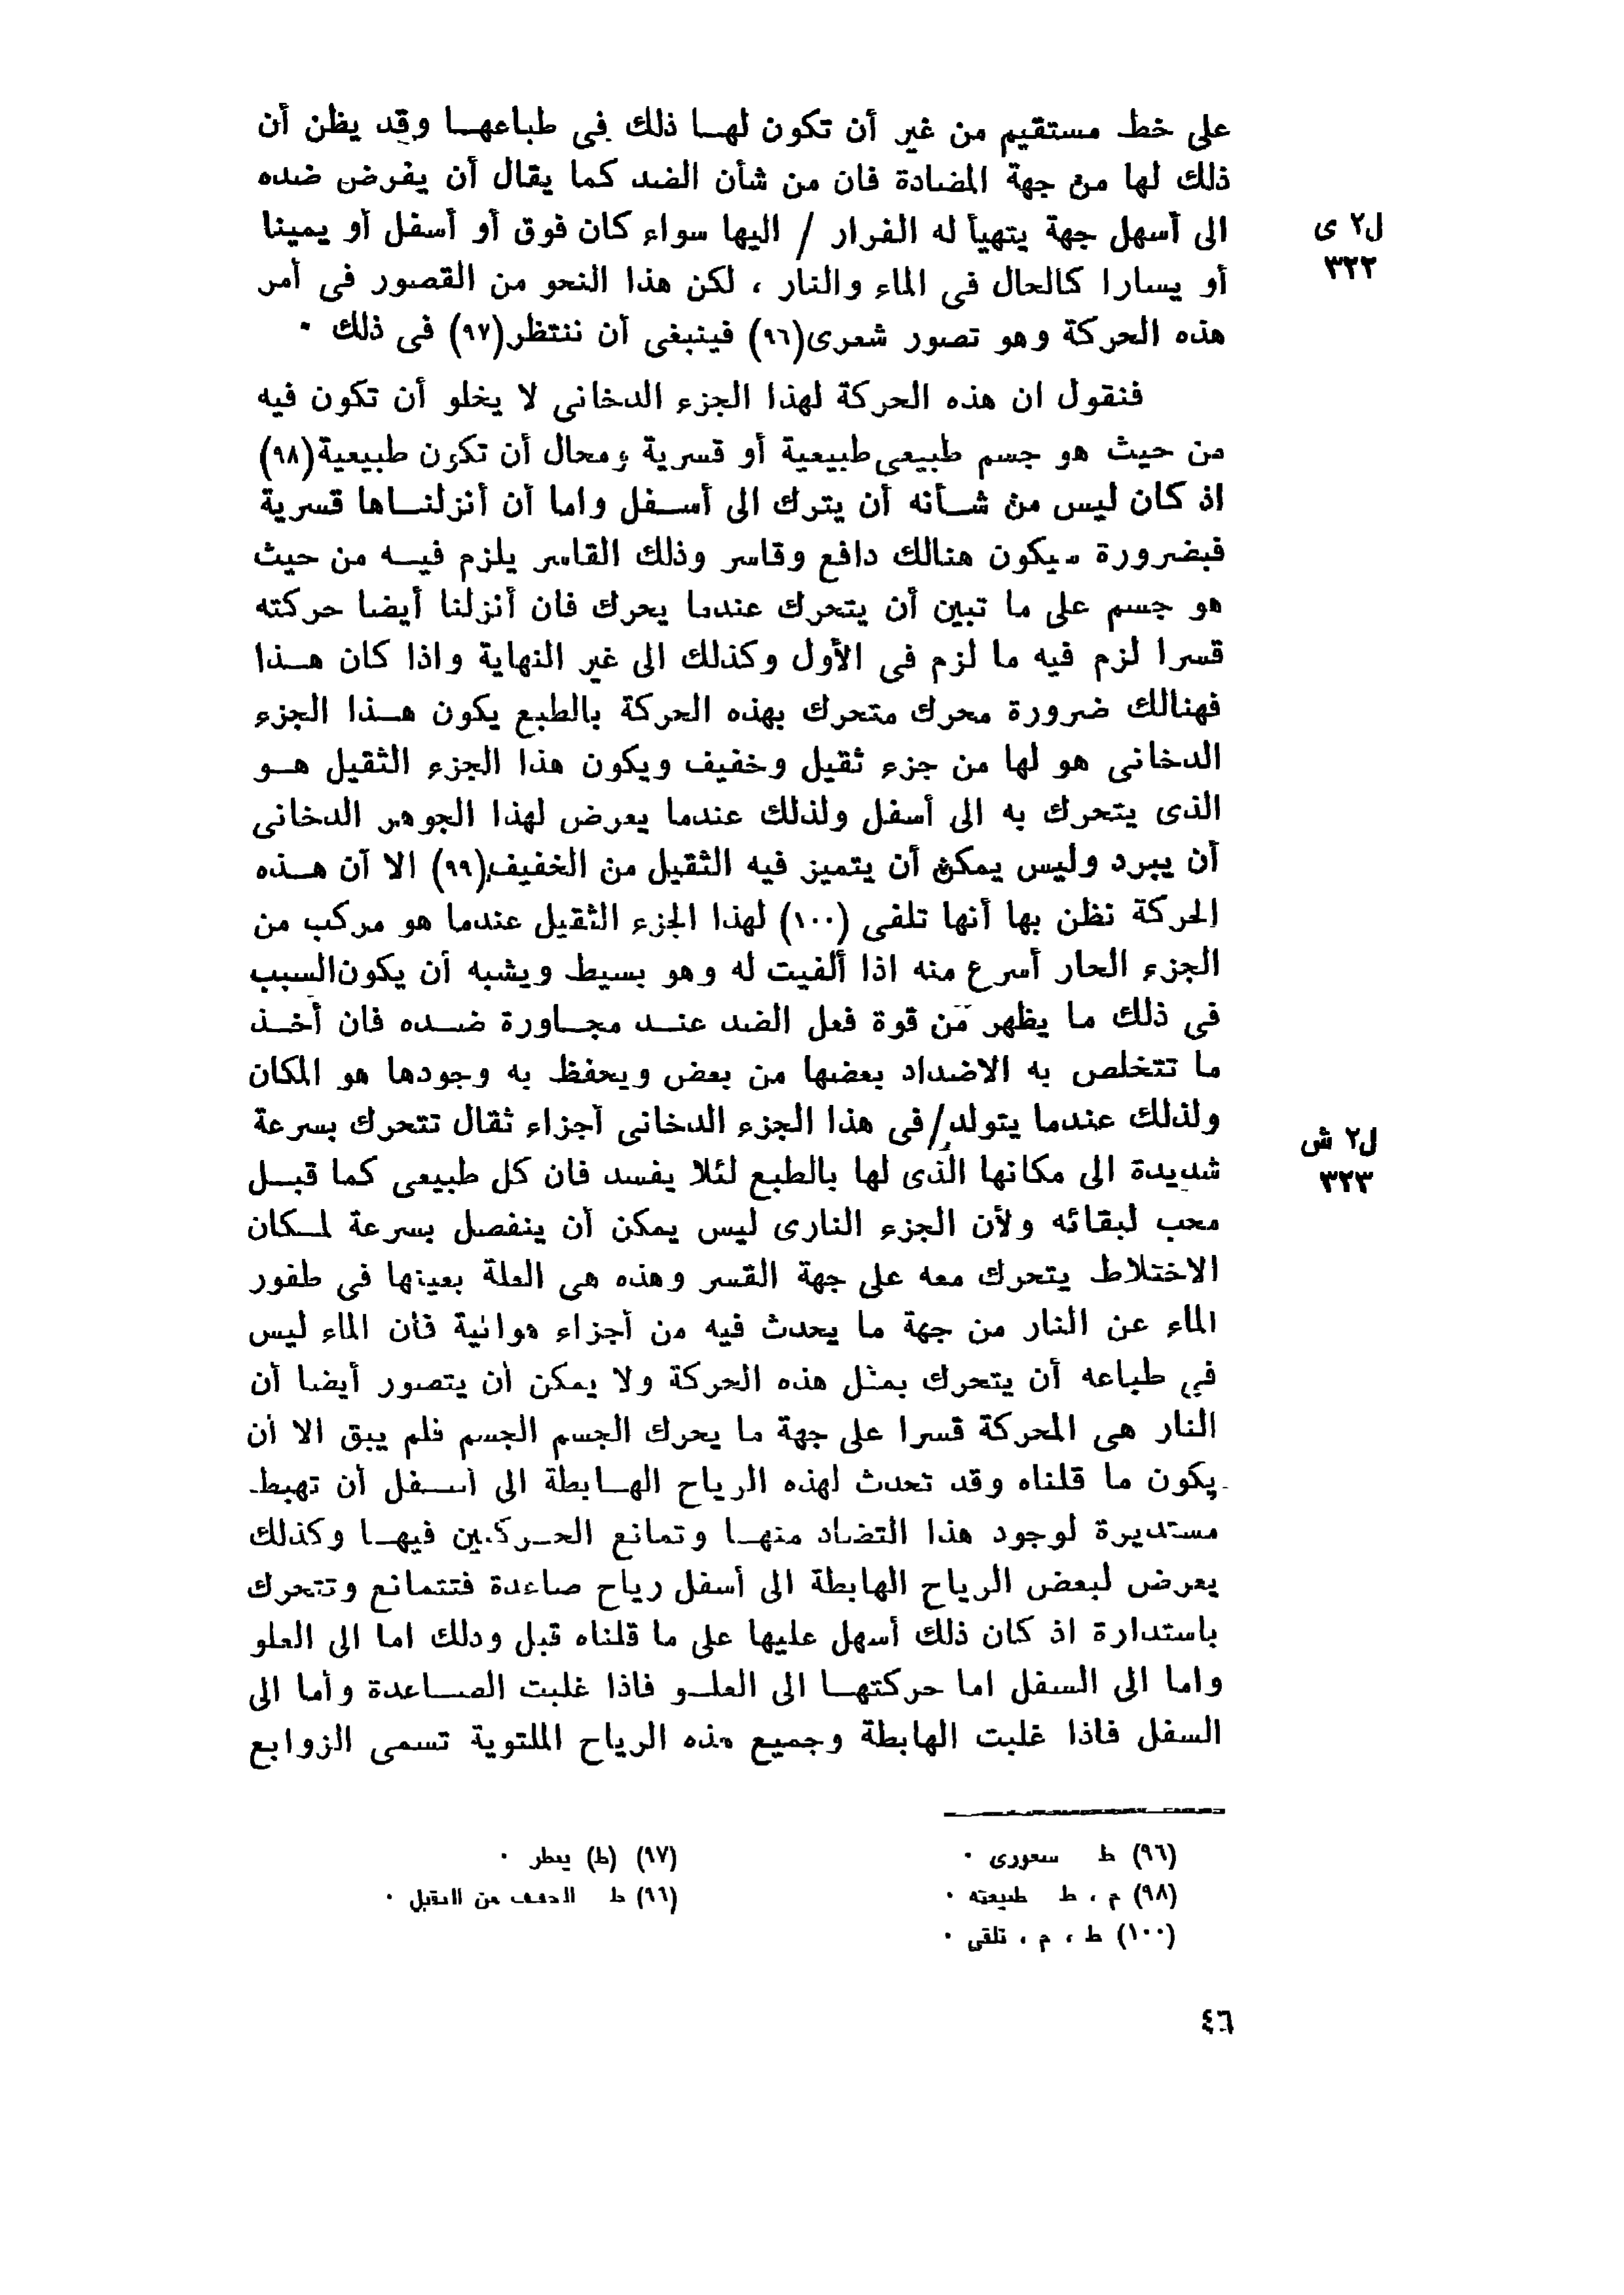 على خط مستقيم من غير أن تكون لها ذلك فى طباعها وقد يظن أن
ذلك لها من جهة المضادة فان من شأن الضد كما يقال أن يفرض ضده
الى أسهل جهة يتهيأ له الفرار / اليها سواء كان فوق أو أسفل أو يمينا
ل٢ ى
٣٢٢
أو يسارا كالحال فى الماء والنار ، لكن هذا النحو من القصور فى أمر
هذه الحركة وهو تصور شعرى(٩٦) فينبغى أن ننتظر(٩٧) فى ذلك ٠
فنقول ان هذه الحركة لهذا الجزء الدخانى لا يخلو أن تكون فيه
من حيث هو جسم طبيعى طبيعية أو قسرية ومحال أن تكون طبيعية(٩٨)
اذ كان ليس من شأنه أن يترك الى أسفل واما أن أنزلناها قسرية
فبضرورة سيكون هنالك دافع وقاسر وذلك القاسر يلزم فيه من حيث
هو جسم على ما تبين أن يتحرك عندما يحرك فان أنزلنا أيضا حركته
قسرا لزم فيه ما لزم فى الأول وكذلك الى غير النهاية واذا كان هذا
فهنالك ضرورة محرك متحرك بهذه الحركة بالطبع يكون هذا الجزء
الدخانى هو لها من جزء ثقيل وخفيف ويكون هذا الجزء الثقيل هو
الذى يتحرك به الى أسفل ولذلك عندما يعرض لهذا الجوهر الدخانى
أن يبرد وليس يمكن أن يتميز فيه الثقيل من الخفيف(٩٩) الا آن هذه
الحركة نظن بها أنها تلفى (١٠٠) لهذا الجزء الثقيل عندما هو مركب من
الجزء الحار أسرع منه اذا ألفيت له وهو بسيط ويشبه أن يكون السبب
فى ذلك ما يظهر من قوة فعل الضد عند مجاورة ضده فان أخذ
ما تتخلص به الاضداد بعضها من بعض ويحفظ به وجودها هو المكان
ولذلك عندما يتولد/ فى هذا الجزء الدخانى أجزاء ثقال تتحرك بسرعة
ل٢ ش
٣٢٣
شديدة الى مكانها الذى لها بالطبع لئلا يفسد فان كل طبيعى كما قبل
محب لبقائه ولأن الجزء النارى ليس يمكن أن ينفصل بسرعة لمكان
الاختلاط يتحرك معه على جهة القسر وهذه هى العلة بعينها فى طفور
الماء عن النار من جهة ما يحدث فيه من أجزاء هوائية فان الماء ليس
فى طباعه أن يتحرك بمثل هذه الحركة ولا يمكن أن يتصور أيضا أن
النار هى المحركة قسرا على جهة ما يحرك الجسم الجسم فلم يبق الا أن
يكون ما قلناه وقد تحدث لهذه الرياح الهابطة الى أسفل أن تهبط
مستديرة لوجود هذا التضاد منها وتمانع الحركتين فيها وكذلك
يعرض لبعض الرياح الهابطة الى أسفل رياح صاعدة فتتمانع وتتحرك
باستدارة اذ كان ذلك أسهل عليها على ما قلناه قبل ودلك اما الى العلو
واما الى السفل اما حركتها الى العلو فاذا غلبت الصاعدة وأما الى
السفل فاذا غلبت الهابطة وجميع هذه الرياح الملتوية تسمى الزوابع
(٩٦) ط سعورى ٠
(٩٧) (ط) ينظر ٠
(٩٨) م ، ط طبيعته ٠
(٩٩) ط الخفيف من الثقيل ٠
(١٠٠) ط ، م ، تلقى ٠
٤٦